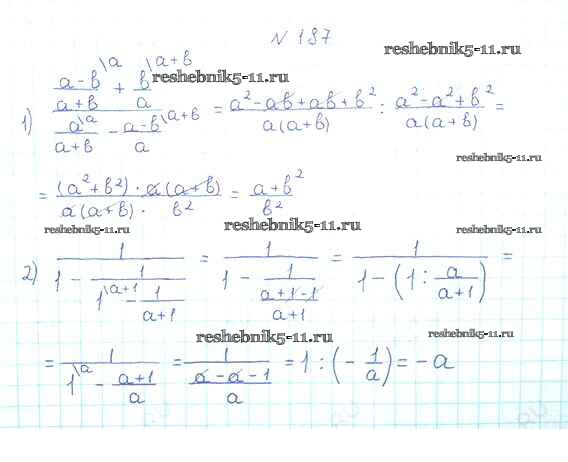 N 187
reshebnik5-11.ru
1) ((a-b)/(a+b) \a + b/a \a+b) / (a/(a+b) \a - (a-b)/a \a+b) = (a²-ab+ab+b²)/(a(a+b)) : (a²-a²+b²)/(a(a+b)) =
reshebnik5-11.ru
reshebnik5-11.ru
= ((a²+b²)·a(a+b))/(a(a+b)·b²) = (a+b²)/b²
reshebnik5-11.ru
reshebnik5-11.ru
reshebnik5-11.ru
2) 1/(1 - 1/(1 \a+1 - 1/(a+1))) = 1/(1 - 1/((a+1-1)/(a+1))) = 1/(1-(1:a/(a+1))) =
reshebnik5-11.ru
reshebnik5-11.ru
= 1/(1 \a - (a+1)/a) = 1/((a-a-1)/a) = 1:(-1/a) = -a